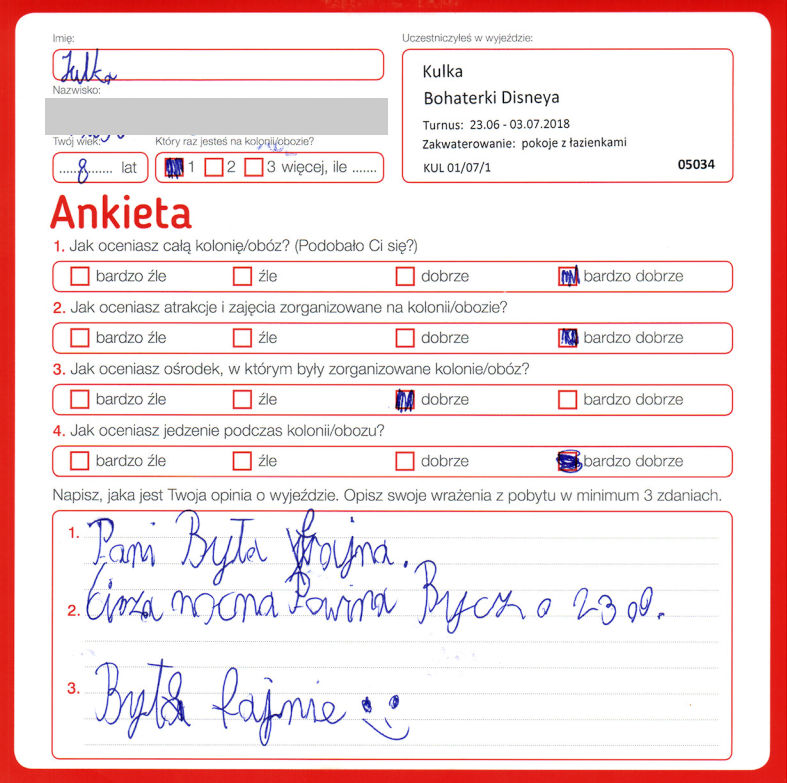 Imię:
Julka
Nazwisko:
Twój wiek:
Który raz jesteś na kolonii/obozie?
.....8........ lat
1 2 3 więcej, ile .......
Uczestniczyłeś w wyjeździe:
Kulka
Bohaterki Disneya
Turnus: 23.06 - 03.07.2018
Zakwaterowanie: pokoje z łazienkami
KUL 01/07/1 05034
Ankieta
1. Jak oceniasz całą kolonię/obóz? (Podobało Ci się?)
bardzo źle źle dobrze bardzo dobrze
2. Jak oceniasz atrakcje i zajęcia zorganizowane na kolonii/obozie?
bardzo źle źle dobrze bardzo dobrze
3. Jak oceniasz ośrodek, w którym były zorganizowane kolonie/obóz?
bardzo źle źle dobrze bardzo dobrze
4. Jak oceniasz jedzenie podczas kolonii/obozu?
bardzo źle źle dobrze bardzo dobrze
Napisz, jaka jest Twoja opinia o wyjeździe. Opisz swoje wrażenia z pobytu w minimum 3 zdaniach.
1. Pani Była fajna.
2. Cisza nocna Powina Bycz o 23 00.
3. Było fajnie